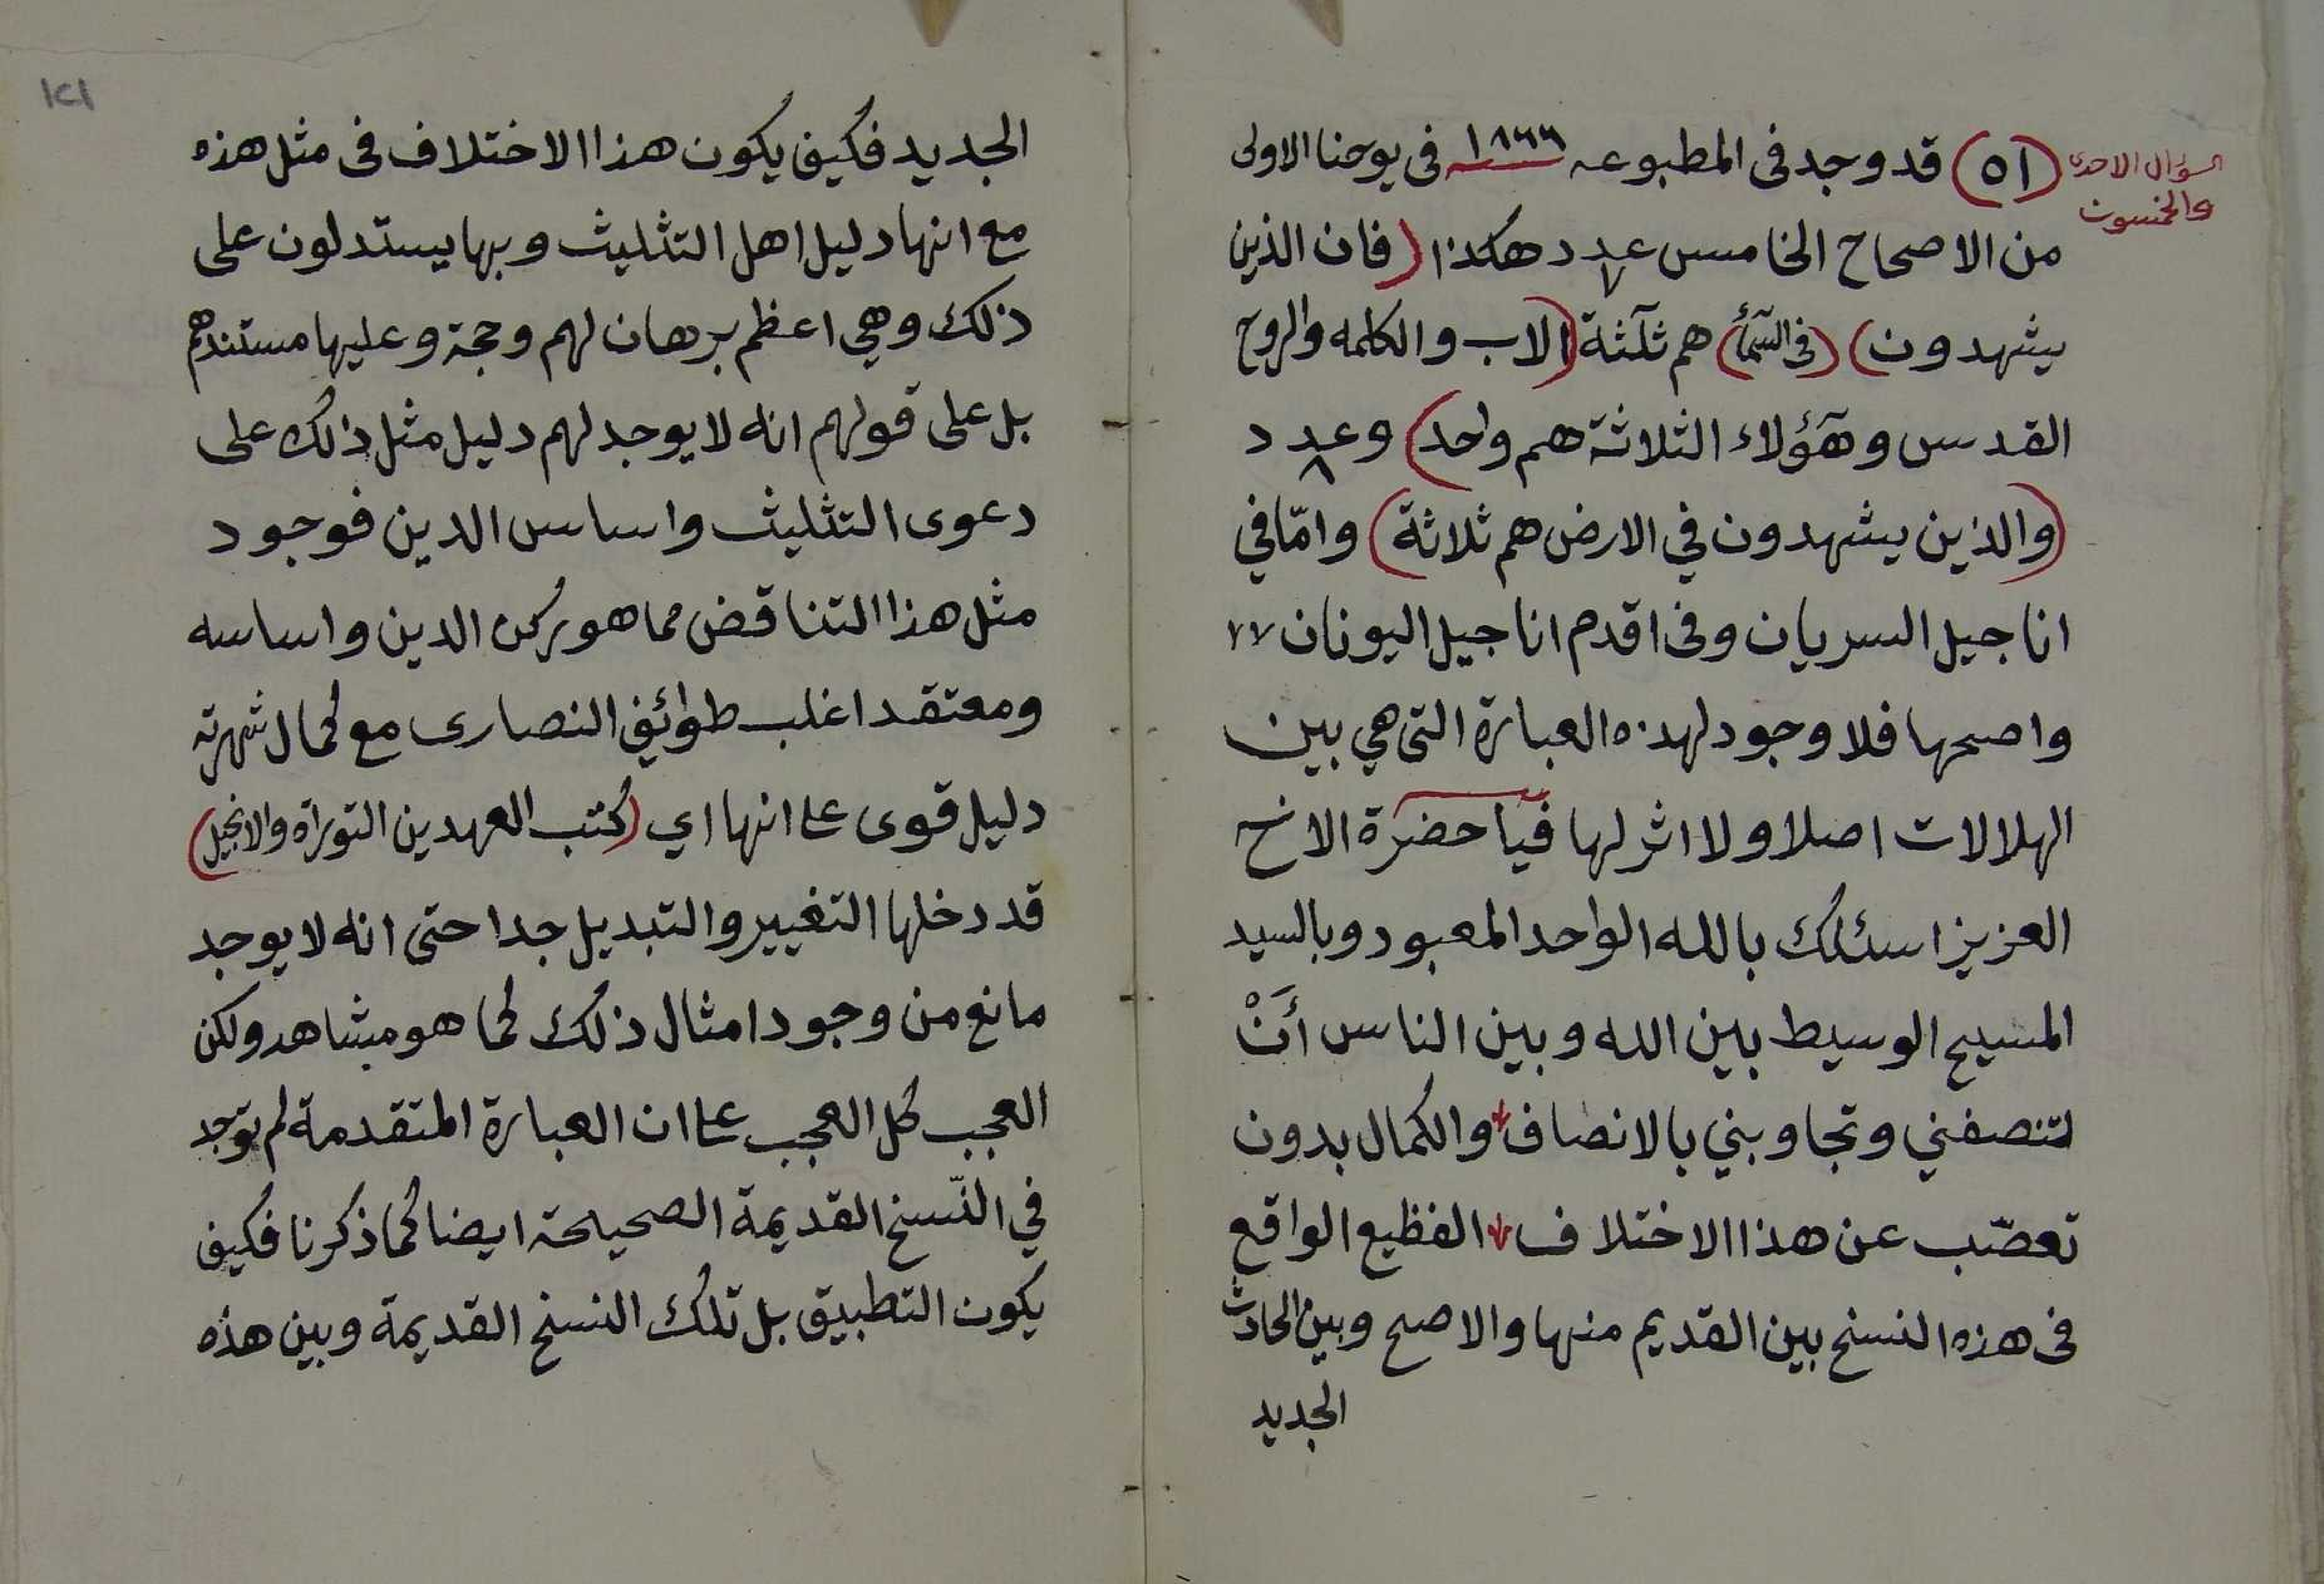 السؤال الاحدى
والخمسون
(٥١) قد وجد فى المطبوعه ١٨٦٦ فى يوحنا الاولى
من الاصحاح الخامس عدد ٧ هكذا (فان الذين
يشهدون) (فى السمأ) هم ثلثة (الاب والكلمه والروح
القدس وهؤلاء الثلاثة هم واحد) وعدد ٨
(والذين يشهدون في الارض هم ثلاثة) وامّا في
اناجيل السريان وفى اقدم اناجيل اليونان
واصحها فلا وجود لهذه العبارة التى هي بين
الهلالات اصلا ولا اثر لها فيا حضرة الاخ
العزيز اسئلك بالله الواحد المعبود وبالسيد
المسيح الوسيط بين الله وبين الناس أَنْ
لتنصفني وتجاوبني بالانصاف والكمال بدون
تعصّب عن هذا الاختلاف الفظيع الواقع
فى هذه النسخ بين القديم منها والاصح وبين الحادث
الجديد
١٢١
الجديد فكيف يكون هذا الاختلاف فى مثل هذه
مع انها دليل اهل التثليث وبها يستدلون على
ذلك وهي اعظم برهان لهم وحجة وعليها مستندهم
بل على قولهم انه لا يوجد لهم دليل مثل ذلك على
دعوى التثليث واساس الدين فوجود
مثل هذا التناقض مما هو ركن الدين واساسه
ومعتقد اغلب طوائف النصارى مع كمال شهرته
دليل قوى على انها اي (كتب العهدين التوراة والانجيل)
قد دخلها التغيير والتبديل جدا حتى انه لا يوجد
مانع من وجود امثال ذلك كما هو مشاهد ولكن
العجب كل العجب على ان العبارة المتقدمة لم توجد
في النّسخ القديمة الصحيحة ايضا كما ذكرنا فكيف
يكون التطبيق بل تلك النسخ القديمة وبين هذه